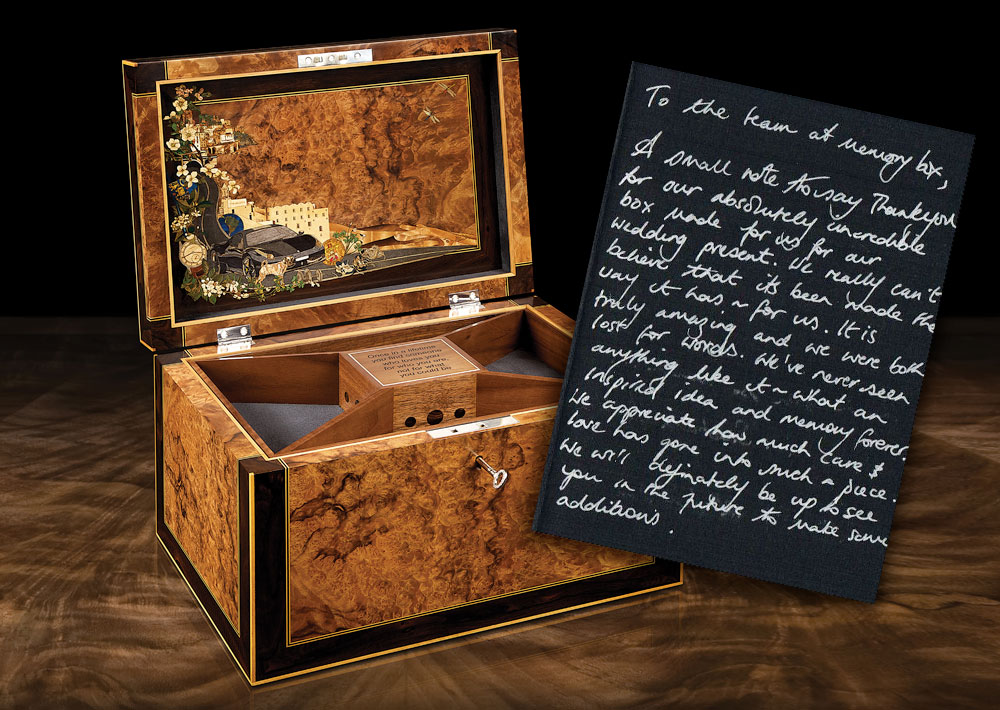 Once in a lifetime
you find someone
who loves you
for who you are
not for what
you could be
To the team at memory box,
A small note to say Thankyou
for our absolutely incredible
box made for us for our
wedding present. We really can't
believe that its been made the
way it has ~ for us. It is
truly amazing and we were both
lost for words. We've never seen
anything like it ~ what an
inspired idea and memory forever.
We appreciate how much care &
love has gone into such a piece.
We will definately be up to see
you in the future to make some
additions.